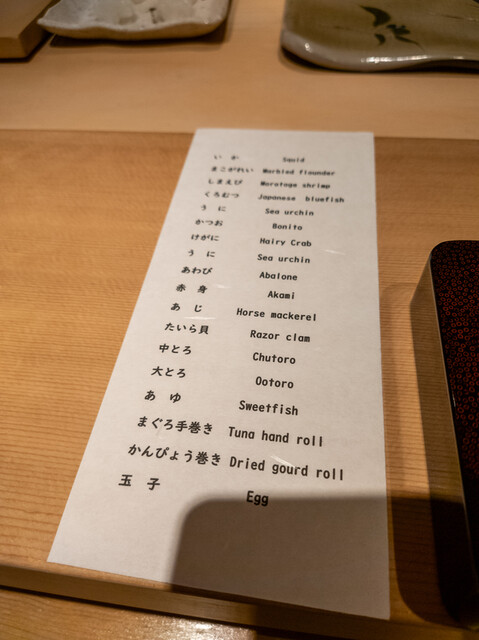 いか Squid
まこがれい Marbled flounder
しまえび Morotoge shrimp
くろむつ Japanese bluefish
うに Sea urchin
かつお Bonito
けがに Hairy Crab
うに Sea urchin
あわび Abalone
赤身 Akami
あじ Horse mackerel
たいら貝 Razor clam
中とろ Chutoro
大とろ Ootoro
あゆ Sweetfish
まぐろ手巻き Tuna hand roll
かんぴょう巻き Dried gourd roll
玉子 Egg